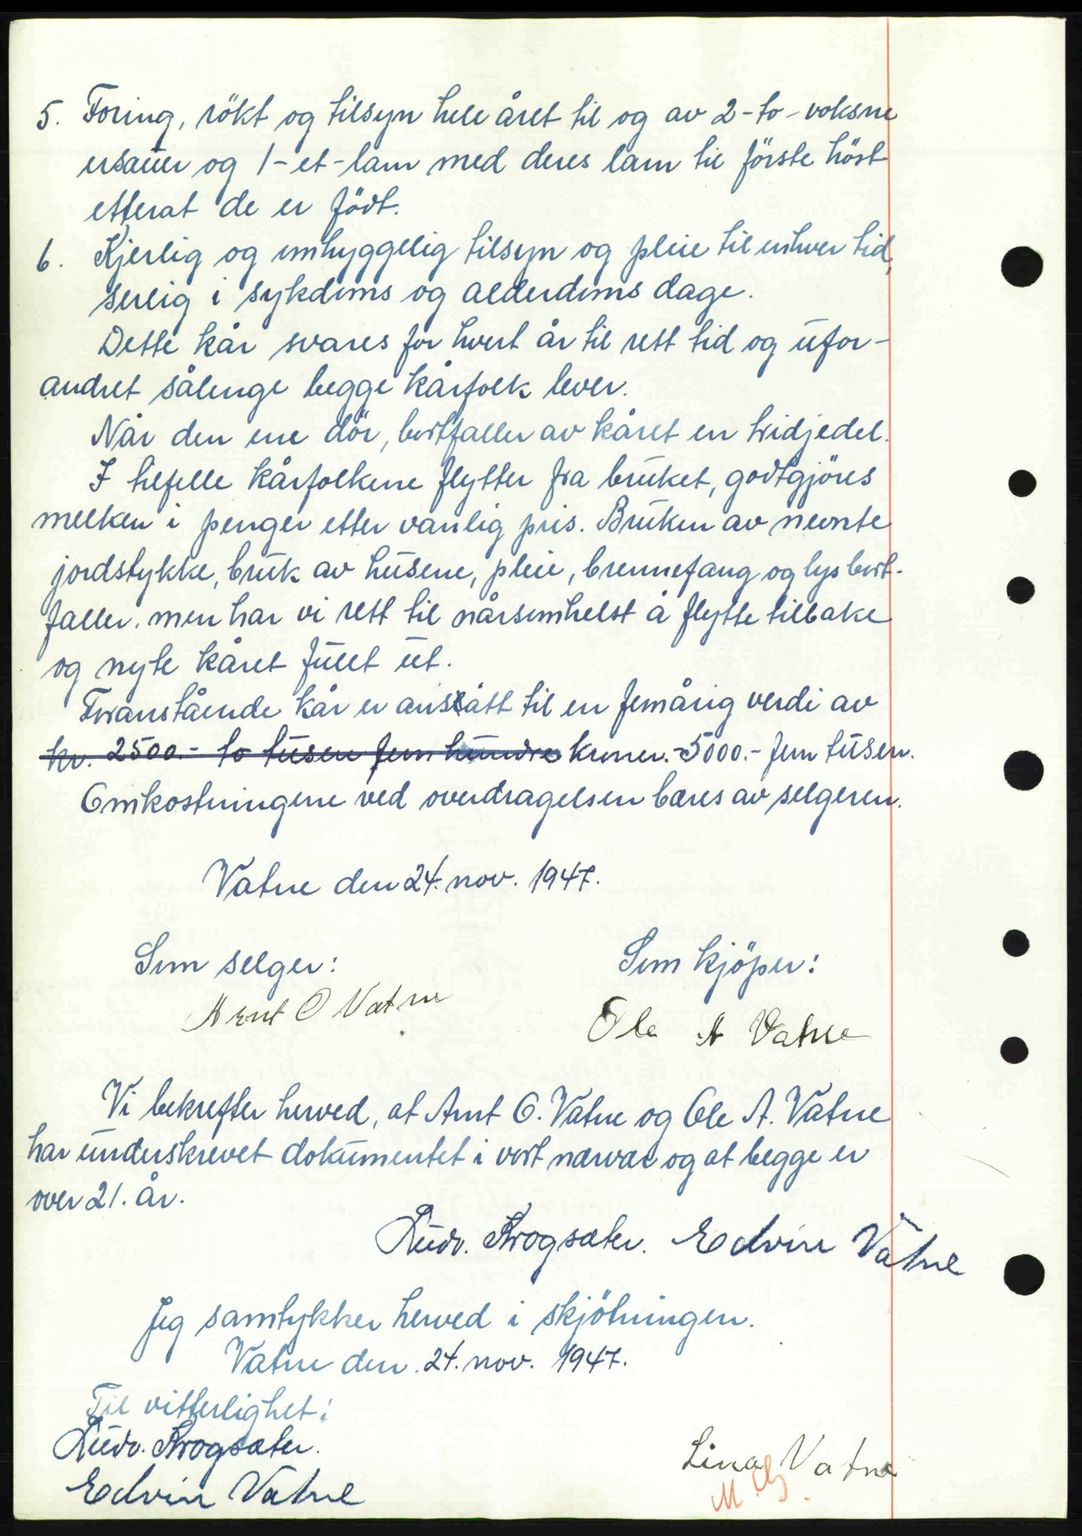 5. Foring, rökt og tilsyn hele året til og av 2-to-voksne
ersauer og 1-et-lam med deres lam til förste höst
etterat de er födt.
6. Kjerlig og omhyggelig tilsyn og pleie til enhver tid,
serlig i sykdoms og alderdoms dage.
Dette kår svares for hvert år til rett tid og ufor-
andret sålenge begge kårfolk lever.
Når den ene dör, bortfaller av kåret en tridjedel.
I tilfelle kårfolkene flytter fra bruket, godtgjöres
melken i penger etter vanlig pris. Bruken av nevnte
jordstykke, bruk av husene, pleie, brennefang og lys bort-
faller. men har vi rett til nårsomhelst å flytte tilbake
og nyte kåret fullt ut.
Foranstående kår er anslått til en femårig verdi av
kr. 2500.- to tusen fem hundre kroner. -5000.- fem tusen.
Omkostningene ved overdragelsen bæres av selgeren.
Vatne den 24. nov. 1947.
Som selger: Som kjöper:
Arnt O Vatne Ole A Vatne
Vi bekrefter herved, at Arnt O. Vatne og Ole A. Vatne
har underskrevet dokumentet i vort nærvær og at begge er
over 21. år.
Ludv. Krogsæter. Edvin Vatne
Jeg samtykker herved i skjötningen.
Vatne den 24. nov. 1947.
Til vitterlighet:
Ludv. Krogsæter. Lina Vatne
Edvin Vatne